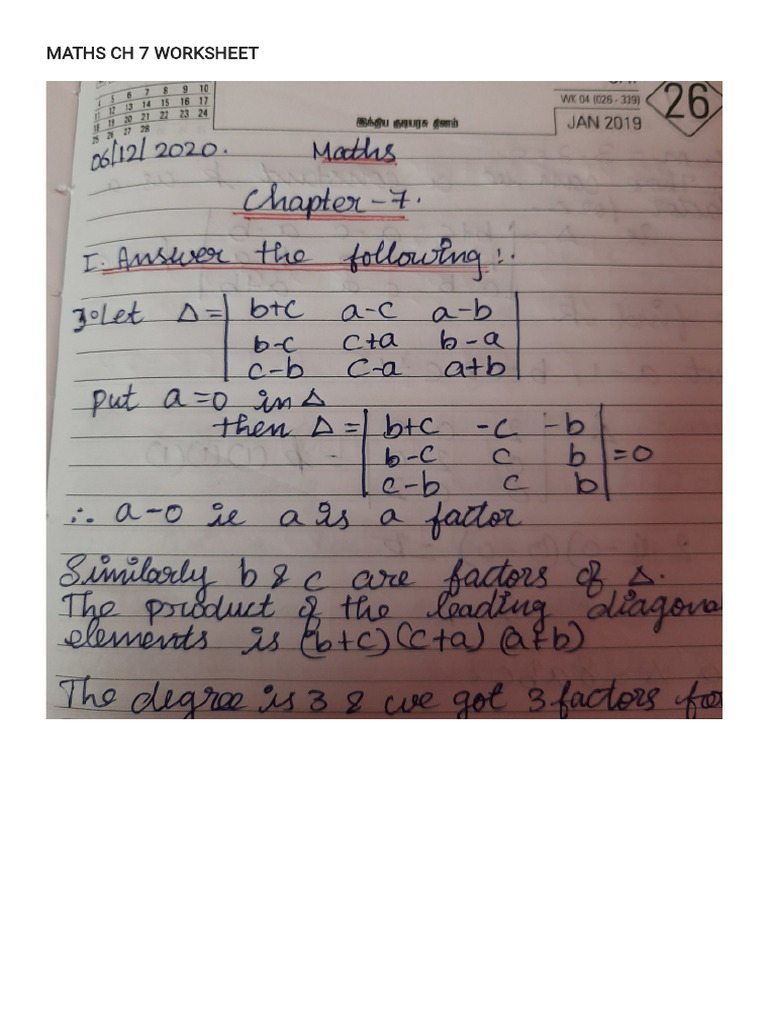 MATHS CH 7 WORKSHEET
6 7 8 9 10
4 5 13 14 15 16 17
11 12 20 21 22 23 24
18 19 27 28
25 26
WK 04 (026 - 339)
26
JAN 2019
இந்திய குடியரசு தினம்
06/12/2020. Maths
Chapter-7.
I. Answer the following:.
3. Let Δ = | b+c a-c a-b |
| b-c c+a b-a |
| c-b c-a a+b |
Put a=0 in Δ
then Δ = | b+c -c -b |
| b-c c b | =0
| c-b c b |
∴ a-0 ie a is a factor
Similarly b & c are factors of Δ.
The product of the leading diagona
elements is (b+c) (c+a) (a+b)
The degree is 3 & we got 3 factors for